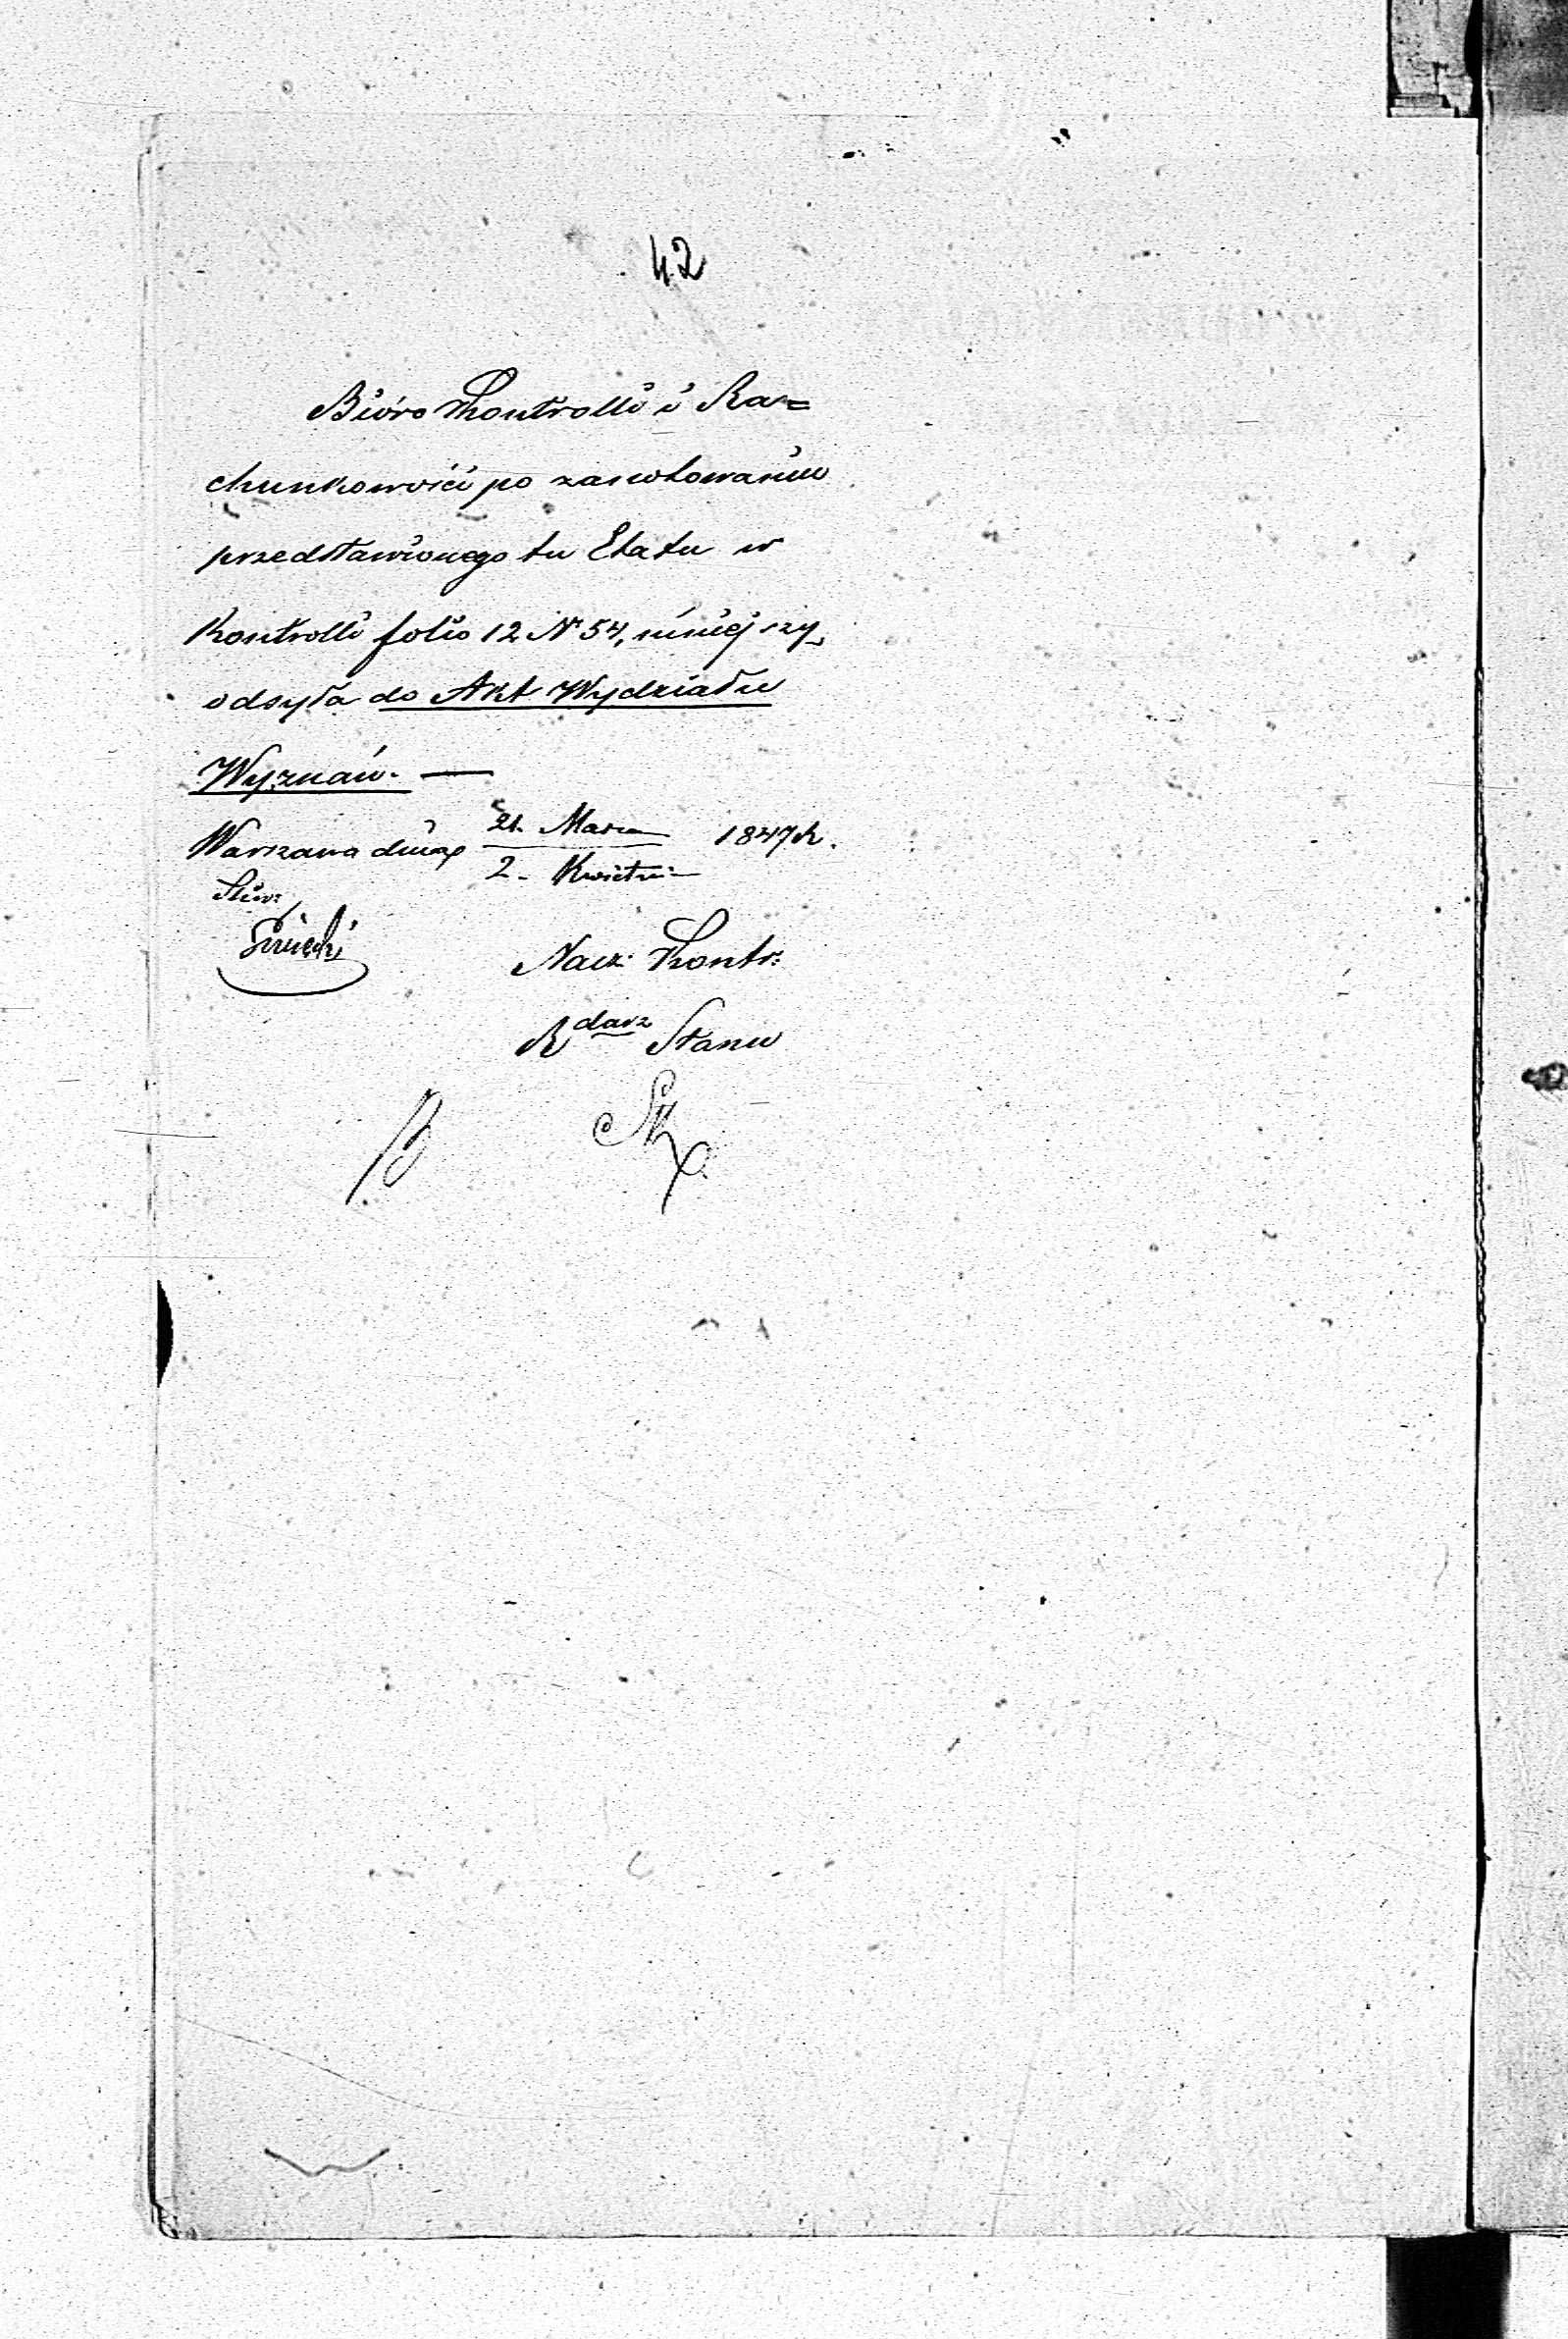 42
Bióro Kontrolli i Ra=
chunkowości po zanotowaniu
przedstawionego tu Etatu w
Kontrolli folio 12 N 54, niniejszy
odsyła do Akt Wydziału
Wyznań. —
Warszawa dnia 21. Marca 1847 R.
2. Kwietnia
Nacz: Kontr:
Rdarz Stanu